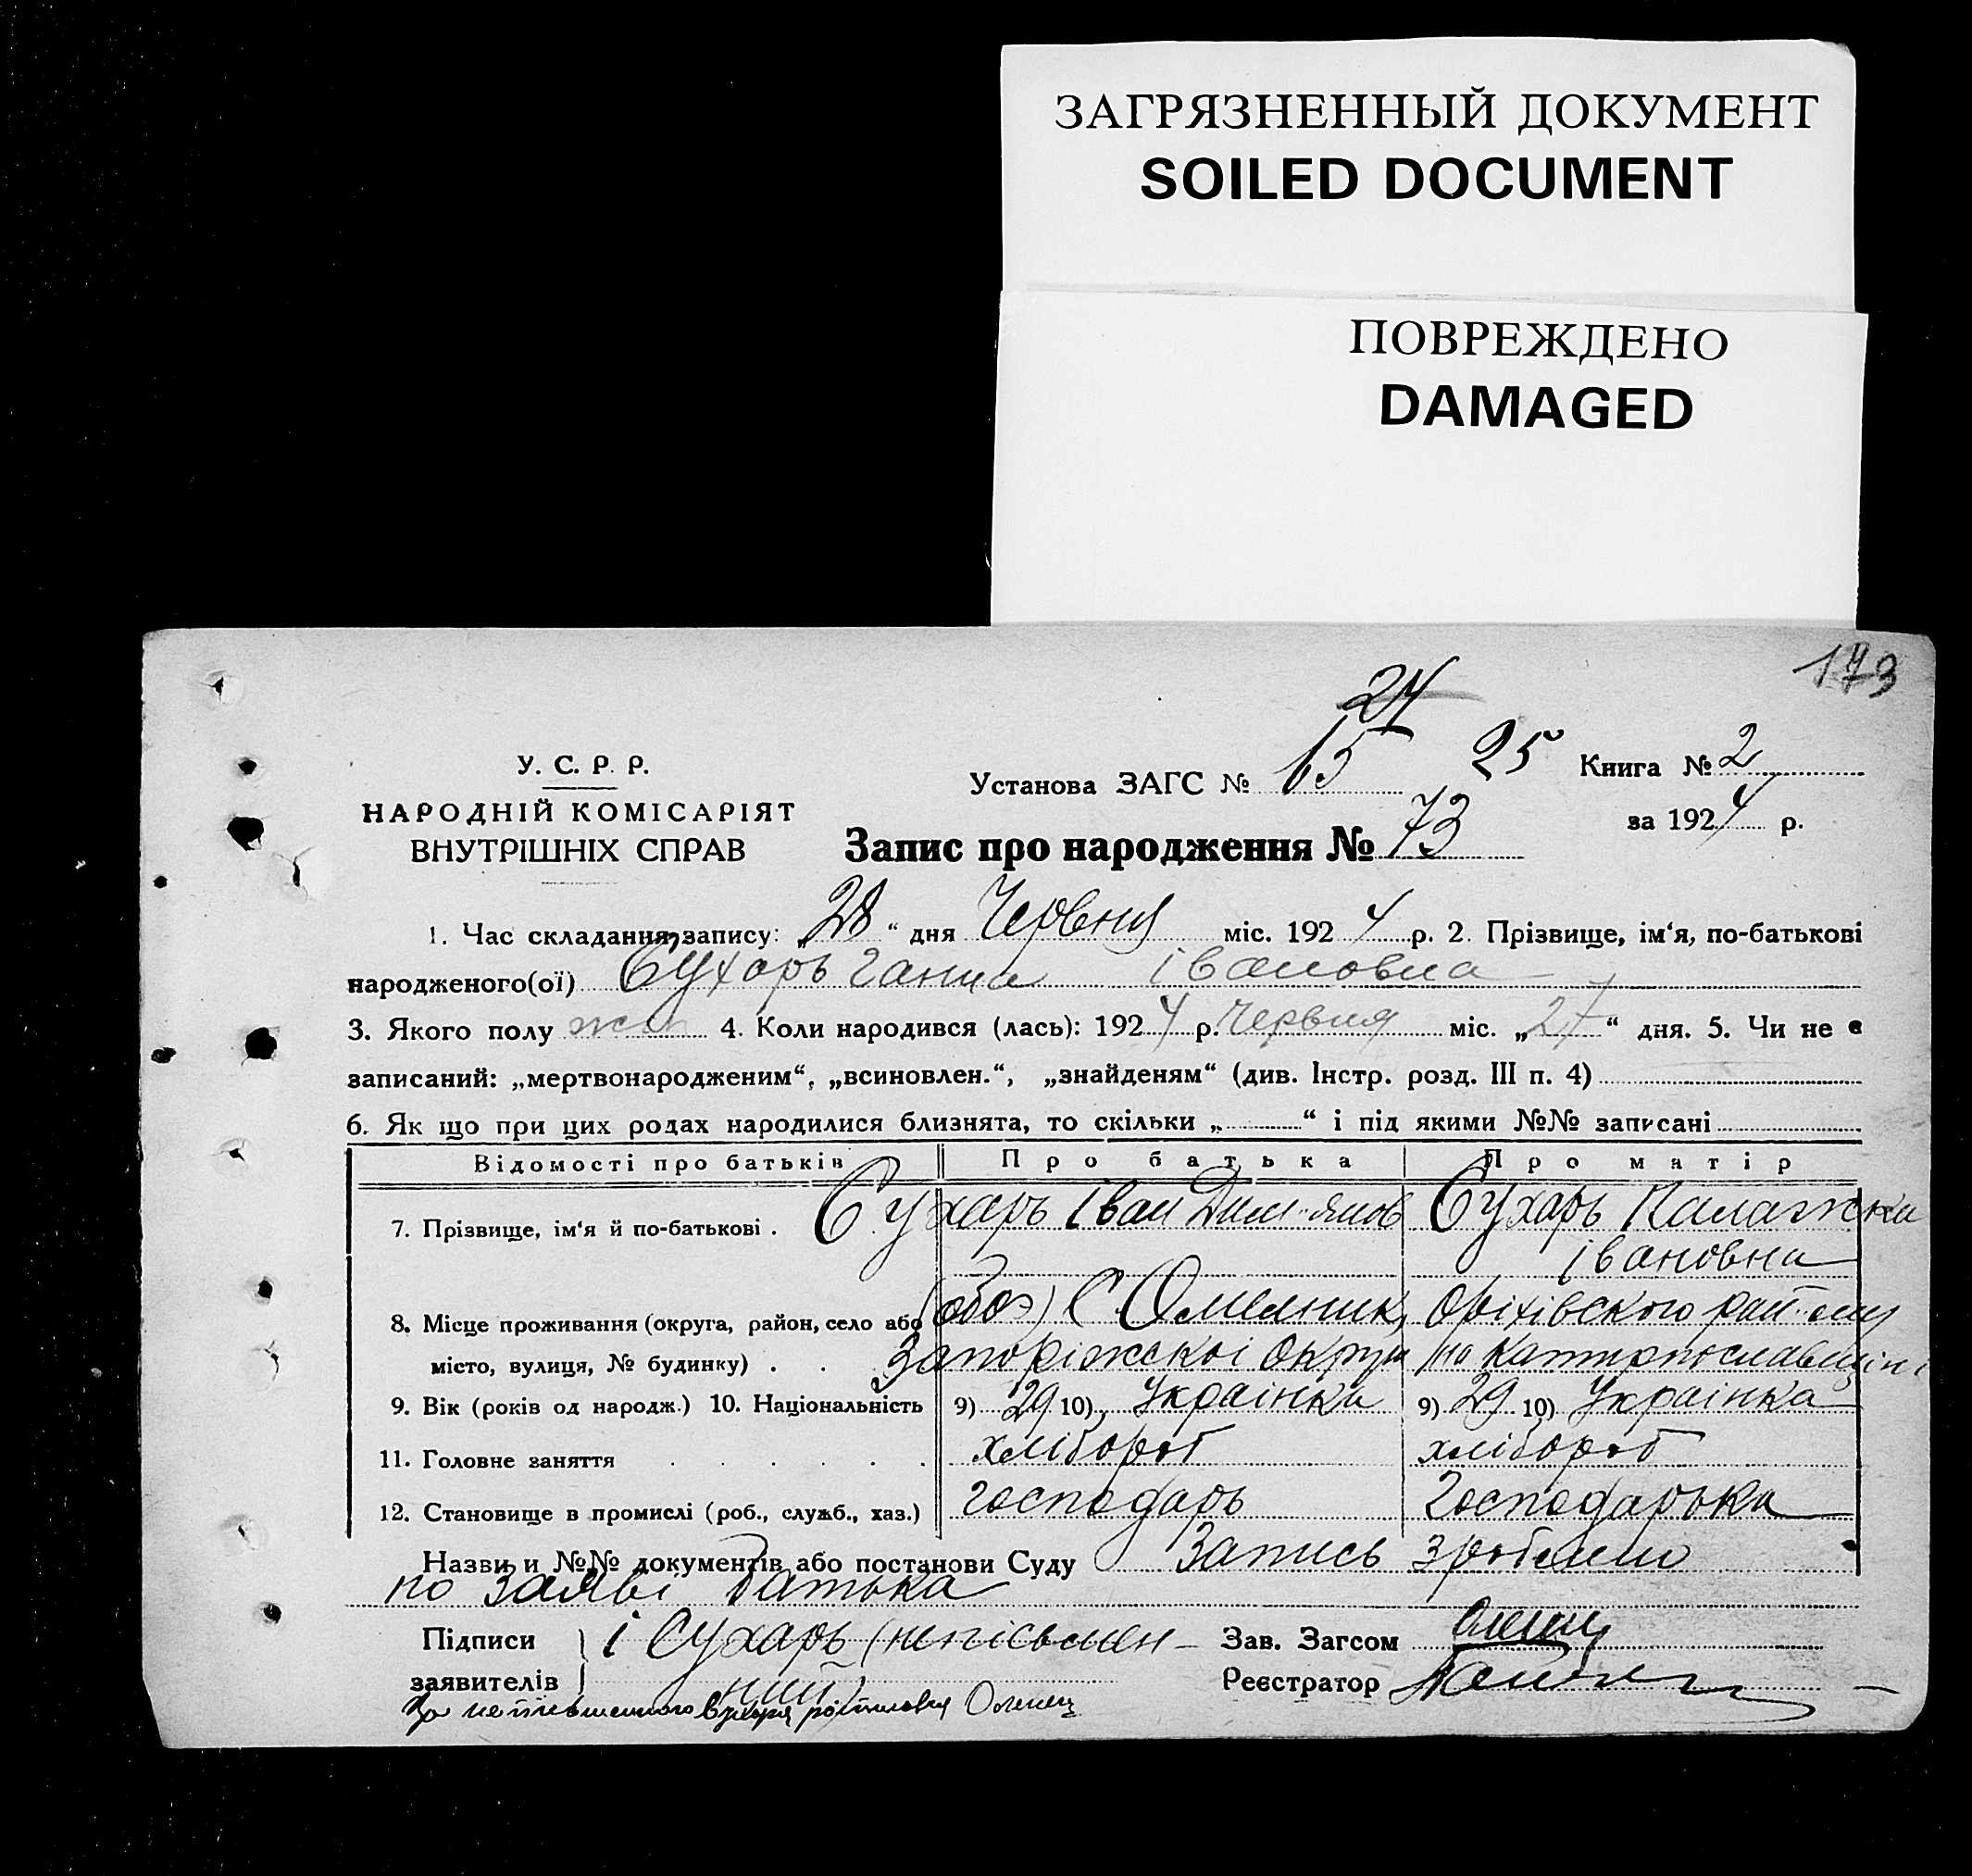 ЗАГРЯЗНЕННЫЙ ДОКУМЕНТ
SOILED DOCUMENT
ПОВРЕЖДЕНО
DAMAGED
173
24
У. С. Р. Р.
НАРОДНІЙ КОМІСАРІЯТ
ВНУТРІШНІХ СПРАВ
Установа ЗАГС № 15 25 Книга № 2
за 1924 р.
Запис про народження № 73
1. Час складання запису: „28“ дня Червня міс. 1924 р. 2. Прізвище, ім‘я, по-батькові
народженого(ої) Сухарь Ганна Івановна
3. Якого полу жін 4. Коли народився (лась): 1924 р. Червня міс. „27“ дня. 5. Чи не є
записаний: „мертвонародженим“, „всиновлен.“, „знайденям“ (див. Інстр. розд. III п. 4)
6. Як що при цих родах народилися близнята, то скільки „ “ і під якими №№ записані
Відомості про батьків Про батька Про матір
7. Прізвище, ім‘я й по-батькові . Сухарь Іван Дим'янов Сухарь Палажка
Івановна
8. Місце проживання (округа, район, село або (обоє) С. Омельник, Оріхівського
місто, вулиця, № будинку) . . Запоріжскоі Округи на Катиринославщіні
9. Вік (років од народж.) 10. Національність 9) 29 10) Украінка 9) 29 10) Украінка
11. Головне заняття . . . . . . хлібороб хлібороб
12. Становище в промислі (роб., служб., хаз.) господарь Господарька
Назви и №№ документів або постанови Суду Запись зроблено
по заяві батька
Підписи і Сухарь (неписьмен- Зав. Загсом
заявителів ний) Реєстратор
За неписьменного Оленец